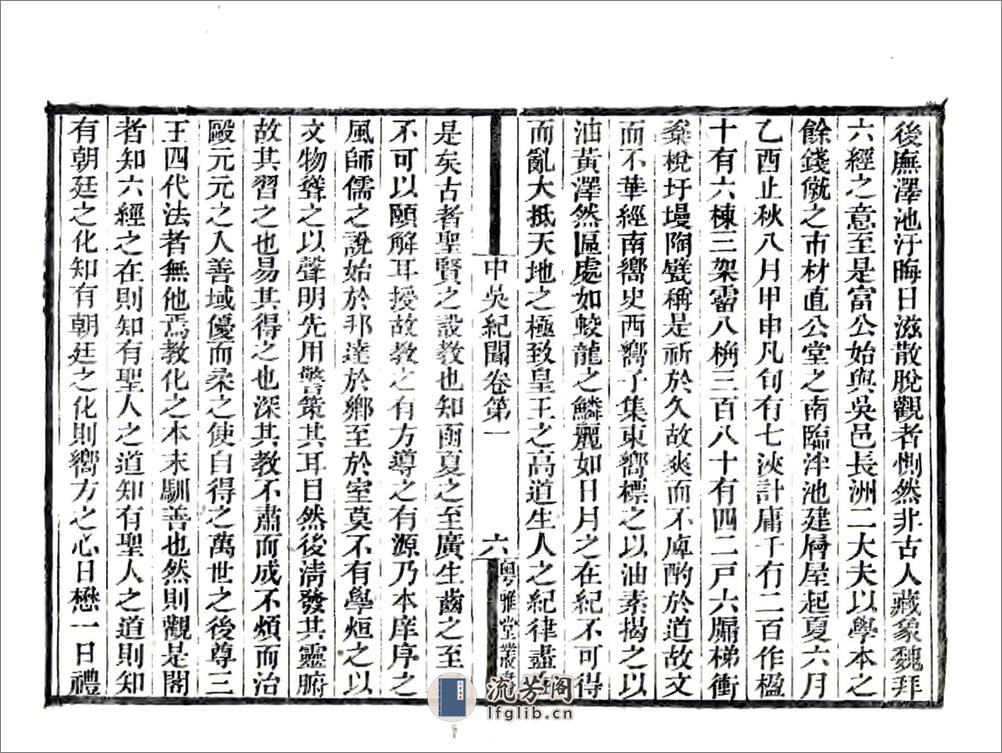 後廡澤池汙晦日滋散脫觀者惻然非古人藏象魏拜
六經之意至是富公始與吳邑長洲二大夫以學本之
餘錢僦之市材直公堂之南臨泮池建層屋起夏六月
乙酉止秋八月甲申凡旬有七浹計庸千有二百作楹
十有六棟三架霤八桷三百八十有四二戶六牖梯衝
粢梲圬墁陶甓稱是祈於久故爽而不庳酌於道故文
而不華經南嚮史西嚮子集東嚮標之以油素揭之以
油黃澤然區處如蛟龍之鱗麗如日月之在紀不可得
而亂大抵天地之極致皇王之高道生人之紀律盡在
中吳紀聞卷第一 六 粵雅堂叢書
是矣古者聖賢之設教也知函夏之至廣生齒之至
不可以頤解耳授故教之有方導之有源乃本庠序之
風師儒之說始於邦達於鄉至於室莫不有學烜之以
文物聳之以聲明先用警策其耳目然後清發其靈腑
故其習之也易其得之也深其教不肅而成不煩而治
毆元元之人善域優而柔之使自得之萬世之後尊三
王四代法者無他焉教化之本末馴善也然則觀是閣
者知六經之在則知有聖人之道知有聖人之道則知
有朝廷之化知有朝廷之化則嚮方之心日懋一日禮
流芳閣
lfglib.cn